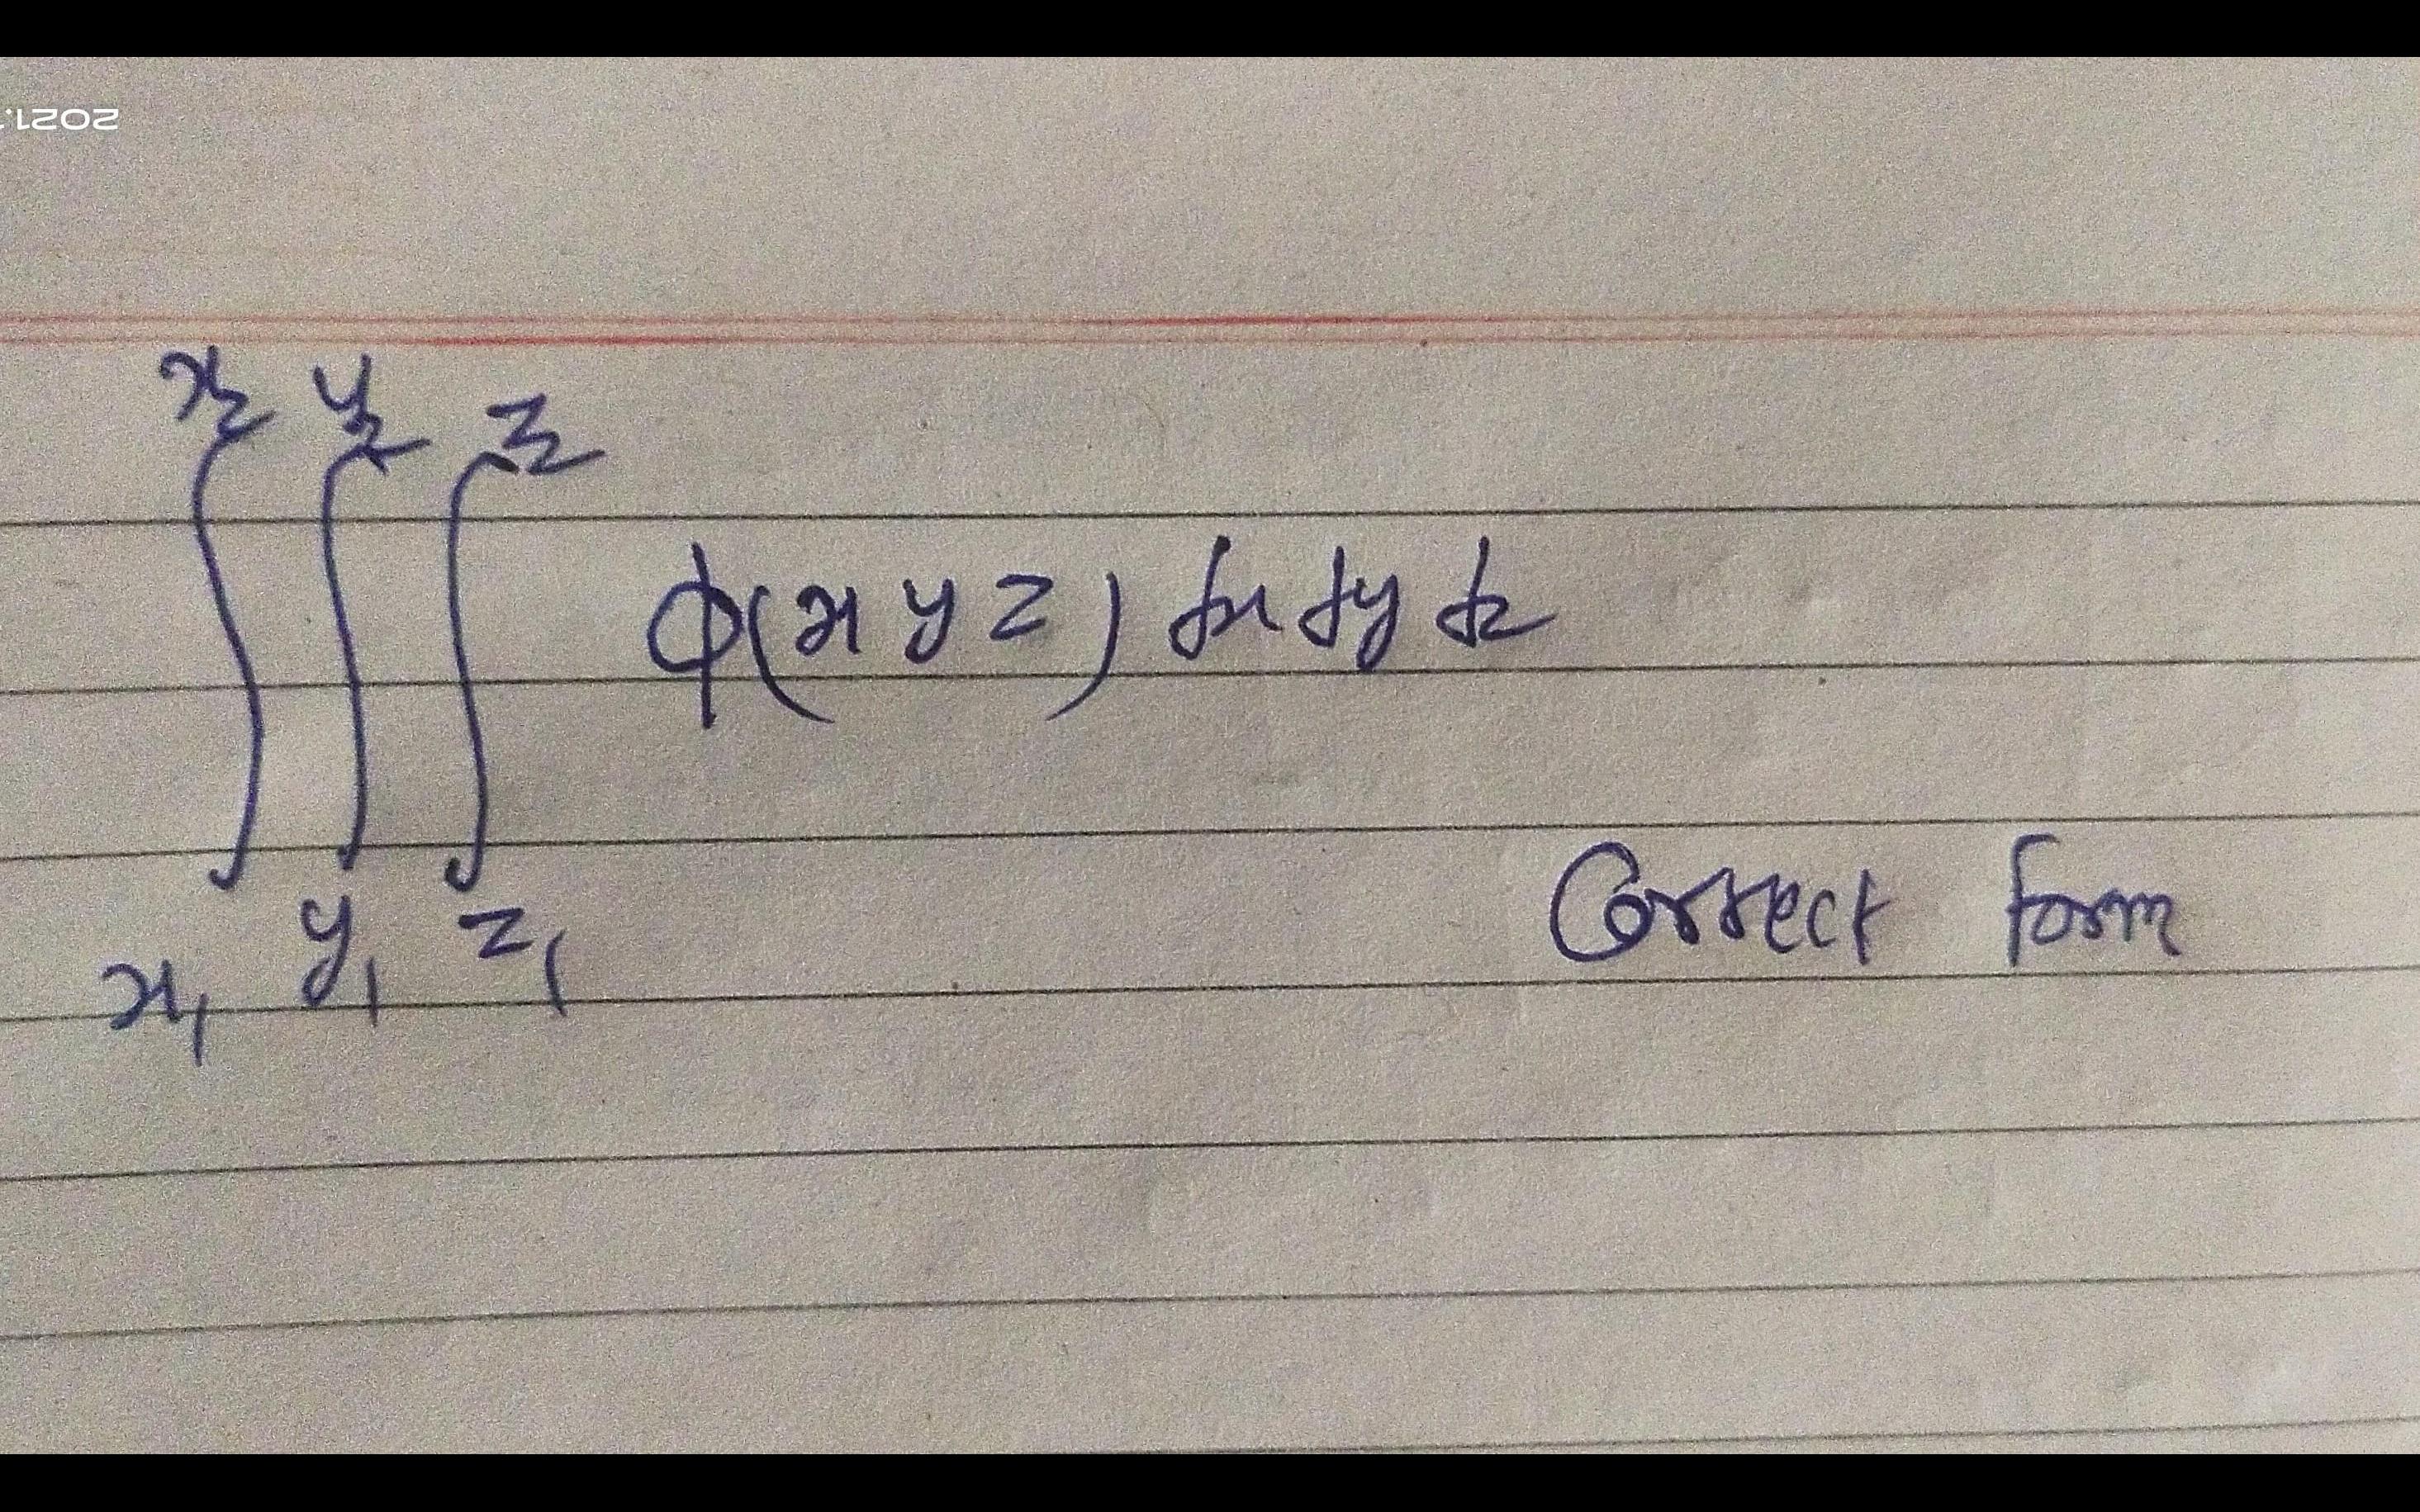 2021.
∫_{x₁}^{x₂} ∫_{y₁}^{y₂} ∫_{z₁}^{z₂} φ(x y z) dx dy dz
Correct form